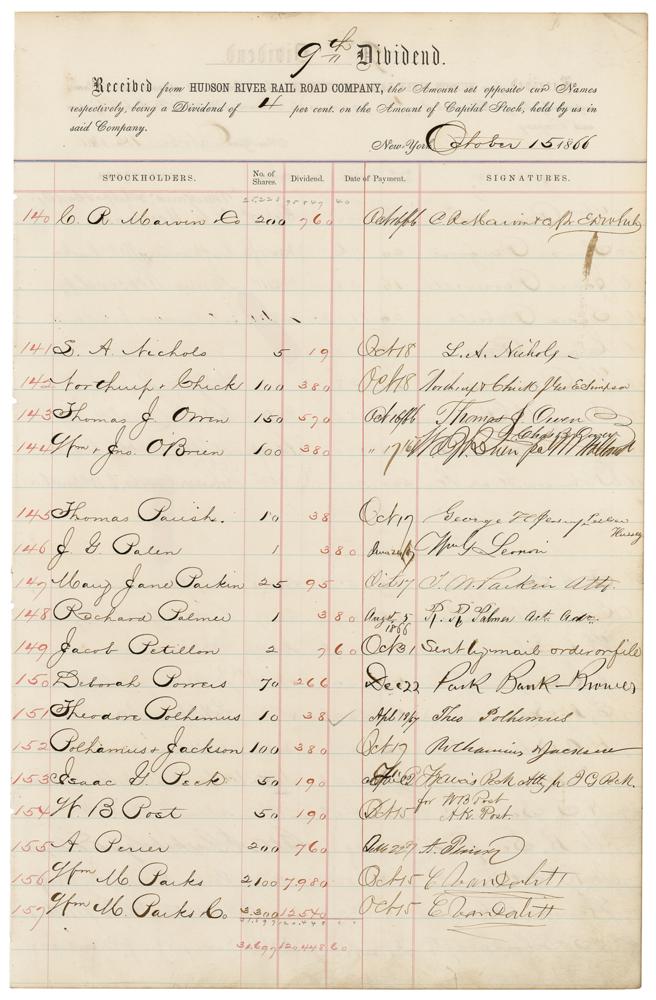 9th Dividend.
Received from HUDSON RIVER RAIL ROAD COMPANY, the Amount set opposite our Names
respectively, being a Dividend of 4 per cent. on the Amount of Capital Stock, held by us in
said Company.
New-York October 15 1866
STOCKHOLDERS. No. of Shares. Dividend. Date of Payment. SIGNATURES.
140 C. R. Marvin & Co 200 760 Oct 16/66 C. R. Marvin & Co
141 L. A. Nichols 5 19 Oct 18 L. A. Nichols
142 Northrup & Chick 100 380 Oct 18 Northrup & Chick Geo E Simpson
143 Thomas J. Owen 150 570 Oct 16/66 Thomas J Owen
144 Wm & Jno. O'Brien 100 380 " 17
145 Thomas Parish. 10 38 Oct 17 George
146 J. G. Palen 1 3 80 Wm G
147 Mary Jane Parkin 25 95 Oct 17 T. W. Parkin Atty.
148 Richard Palmer 1 3 80 Augt 5 1866 R. R. Palmer Act.
149 Jacob Petillon 2 7 60 Oct 31 Sent by mail order on file
150 Deborah Powers 70 266 Dec 22 Park Bank
151 Theodore Polhemus 10 38 Apl 19/67 Theo Polhemus
152 Polhamius & Jackson 100 380 Oct 17 Polhamius & Jackson
153 Isaac G. Peck 50 190 Peck Atty for I G Peck.
154 W. B Post 50 190 Oct 15 for W B Post
A. K. Post.
155 A Perier 200 760
156 Wm M Parks 2,100 7,980 Oct 15 C Vanderbilt
157 Wm M. Parks Co. 3,300 12,540 Oct 15 C Vanderbilt
31,697 120,448 60